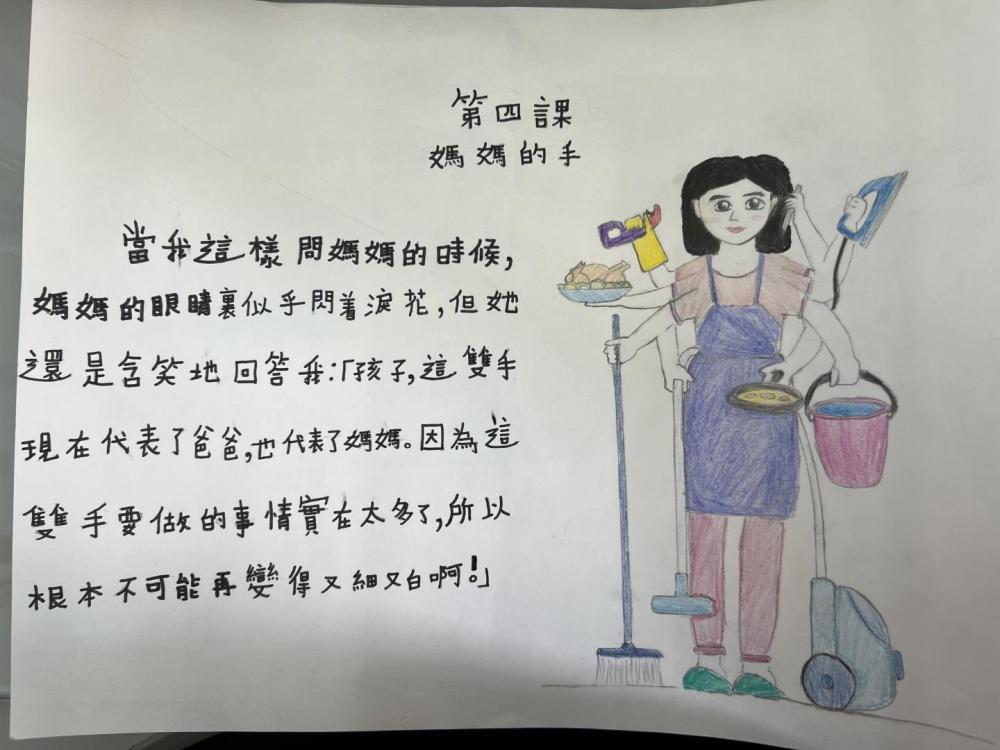 第四課
媽媽的手
當我這樣問媽媽的時候,
媽媽的眼睛裏似乎閃着淚花,但她
還是含笑地回答我:「孩子,這雙手
現在代表了爸爸,也代表了媽媽。因為這
雙手要做的事情實在太多了,所以
根本不可能再變得又細又白啊!」